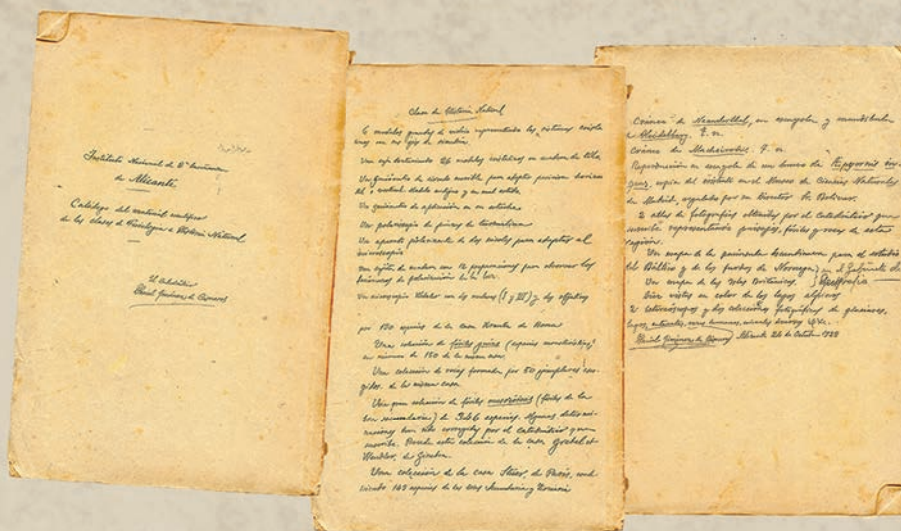 Instituto Nacional de 2ª Enseñanza
de Alicante.
Catálogo del material científico
de las clases de Fisiología e Historia Natural
El Catedrático
Daniel Jiménez de Cisneros
Clase de Historia Natural
6 modelos grandes de madera representando los sistemas crista-
linos con sus ejes de
Una caja conteniendo 26 modelos cristalinos en madera de tilo
Un goniómetro de círculo movible para adaptar
del y metal
Un goniómetro de aplicación en su estuche
Un polariscopio de pinzas de turmalina
Un aparato polarizante de dos nicoles para adaptar al
microscopio
Una cajita de madera con 12 preparaciones para observar los
fenómenos de polarización de la luz.
Un microscopio con dos oculares (I y III) y dos objetivos
por 120 especies de la casa Krantz de Bonn
Una colección de fósiles
en número de 150 de la misma casa
Una colección de rocas formada por 50 ejemplares esco-
gidos de la misma casa
Una gran colección de fósiles mesozóicos (fósiles de la
era secundaria) de especies. Algunas determi-
naciones han sido corregidas por el catedrático que
suscribe. Procede esta colección de la casa
de Ginebra.
Una colección de la casa Stuer, de París, con
145 especies de las eras Secundaria y Terciaria
Cráneo de Neanderthal, en escayola y mandíbula
de Heidelberg.
Cráneo de Machairodus.
Reproducción en escayola de un huevo de Æpyornis
copia del existente en el Museo de Ciencias Naturales
de Madrid, regalado por su Director Sr. Bolívar.
2 de fotografías obtenidas por el catedrático que
suscribe representando paisajes, fósiles y rocas de esta
región.
Un mapa de la península Escandinava para el estudio
del Báltico y de los fiordos de Noruega; en el Gabinete de
Un mapa de las Islas Británicas. Geografía
vistas en color de los lagos alpinos
2 estereóscopos y dos colecciones fotográficas de glaciares,
lagos,
Daniel Jiménez de Cisneros Alicante 26 de Octubre 1928